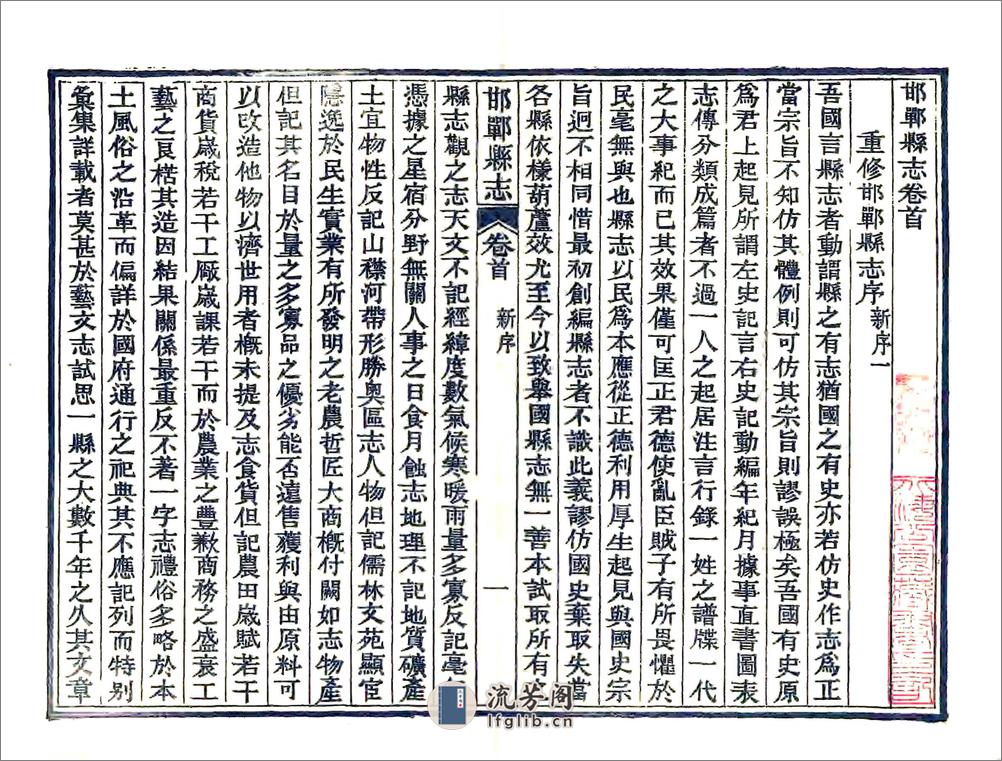 邯鄲縣志卷首
重修邯鄲縣志序 新序一
吾國言縣志者動謂縣之有志猶國之有史亦若仿史作志爲正
當宗旨不知仿其體例則可仿其宗旨則謬誤極矣吾國有史原
爲君上起見所謂左史記言右史記動編年紀月據事直書圖表
志傳分類成篇者不過一人之起居注言行錄一姓之譜牒一代
之大事紀而已其效果僅可匡正君德使亂臣賊子有所畏懼於
民毫無與也縣志以民爲本應從正德利用厚生起見與國史宗
旨迥不相同惜最初創編縣志者不識此義謬仿國史棄取失當
各縣依樣葫蘆效尤至今以致舉國縣志無一善本試取所有
邯鄲縣志 卷首 新序 一
縣志觀之志天文不記經緯度數氣候寒暖雨量多寡反記毫
憑據之星宿分野無關人事之日食月蝕志地理不記地質礦產
土宜物性反記山襟河帶形勝奧區志人物但記儒林文苑顯宦
隱逸於民生實業有所發明之老農哲匠大商概付闕如志物產
但記其名目於量之多寡品之優劣能否遠售獲利與由原料可
以改造他物以濟世用者概未提及志食貨但記農田歲賦若干
商貨歲稅若干工厰歲課若干而於農業之豐歉商務之盛衰工
藝之良楛其造因結果關係最重反不著一字志禮俗多略於本
土風俗之沿革而偏詳於國府通行之祀典其不應記列而特別
彙集詳載者莫甚於藝文志試思一縣之大數千年之久其文章
流芳阁
lfglib.cn